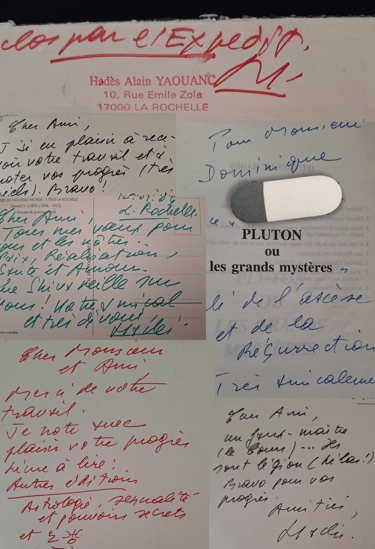 clos par et Expédit.
Hadès Alain YAOUANC
10, Rue Emile Zola
17000 LA ROCHELLE
Cher Ami,
J'ai eu plaisir à rece-
voir votre travail et à
noter vos progrès (très
réels). Bravo!
La Rochelle
Cher Ami,
Tous mes vœux pour
vous et les vôtres.
Paix, Réalisation,
Santé et Amour.
Que Shiva veille sur
vous! Votre amical
et très dévoué.
Hadès.
Pour Monsieur
Dominique
ce
PLUTON
ou
les grands mystères
de l'ascèse
et de la
Résurrection
Très amicalement
Cher Monsieur
et Ami,
Merci de votre
travail.
Je note avec
plaisir votre progrès
Livre à lire:
Autres éditions
Astrologie, sexualité
et pouvoirs secrets
et
Cher Ami,
un faux-maître
(le tiers)... Ils
sont légion (hélas!)
Bravo pour vos
progrès.
Amitiés,
Hadès